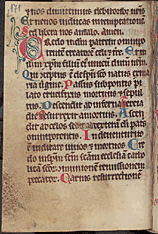 nos dimittimus debitoribus nris
Et ne nos inducas in temptationem
Sed libera nos a malo. amen.
Credo in deum patrem omnipo
tentem creatorem celi et terre. Et in
ihm xpm filium eius unicum dnm
Qui conceptus est de spu sco natus
ria uirgine Passus sub pontio pi
lato crucifixus mortuus et sepul
tus Descendit ad inferna Tercia
die resurrexit a mortuis Ascen
dit ad celos sedet ad dei pa
tris omnipotentis Inde uenturus
est iudicare uiuos et mortuos Cre
do in spm scm scam ecclesiam catho
remissionem
Carnis resurrectionem